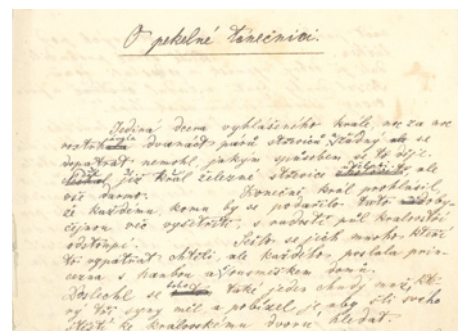 O pekelné tanečnici.
Jediná dcera vyhlášeného krále, noc za noc
dvanáct párů střevíců žádný ale se
dopátrat nemohl, jakým spůsobem se to děje.
již král železné střevíce ale
vše darmo. Konečně král prohlásil,
že každému, komu by se podařilo tuto
věc vyšetřiti s radostí půl království
odstoupí. Sešlo se jich mnoho kteří
to vypátrat chtěli, ale každého poslala prin-
cezna s hanbou a domů.
Doslechl se také jeden chudý muž, kte-
rý tři syny měl a pobízel je aby šli svého
štěstí ke královskému dvoru hledat.